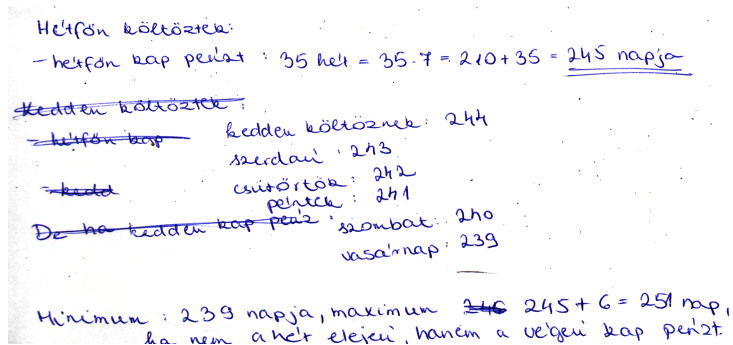 Hétfőn költöztek:
– hétfőn kap pénzt : 35 hét = 35·7 = 210+35 = 245 napja
Kedden költöztek :
– hétfőn kap
kedden költöznek: 244
szerdán : 243
– kedd
csütörtök : 242
péntek : 241
De ha kedden kap pénz
szombat : 240
vasárnap : 239
Minimum : 239 napja, maximum 246 245 + 6 = 251 nap,
ha nem a hét elején, hanem a végén kap pénzt.